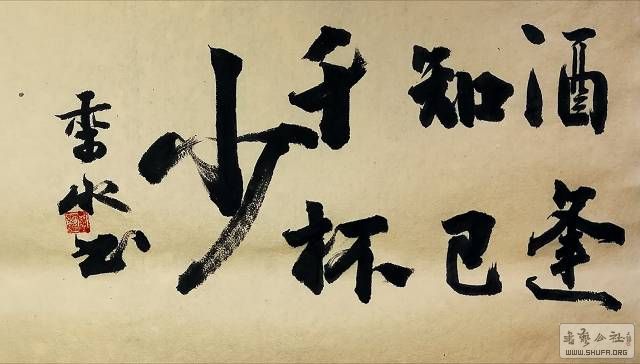 酒逢
知己
千杯
少
水书
书艺公社
WWW.SHUFA.ORG